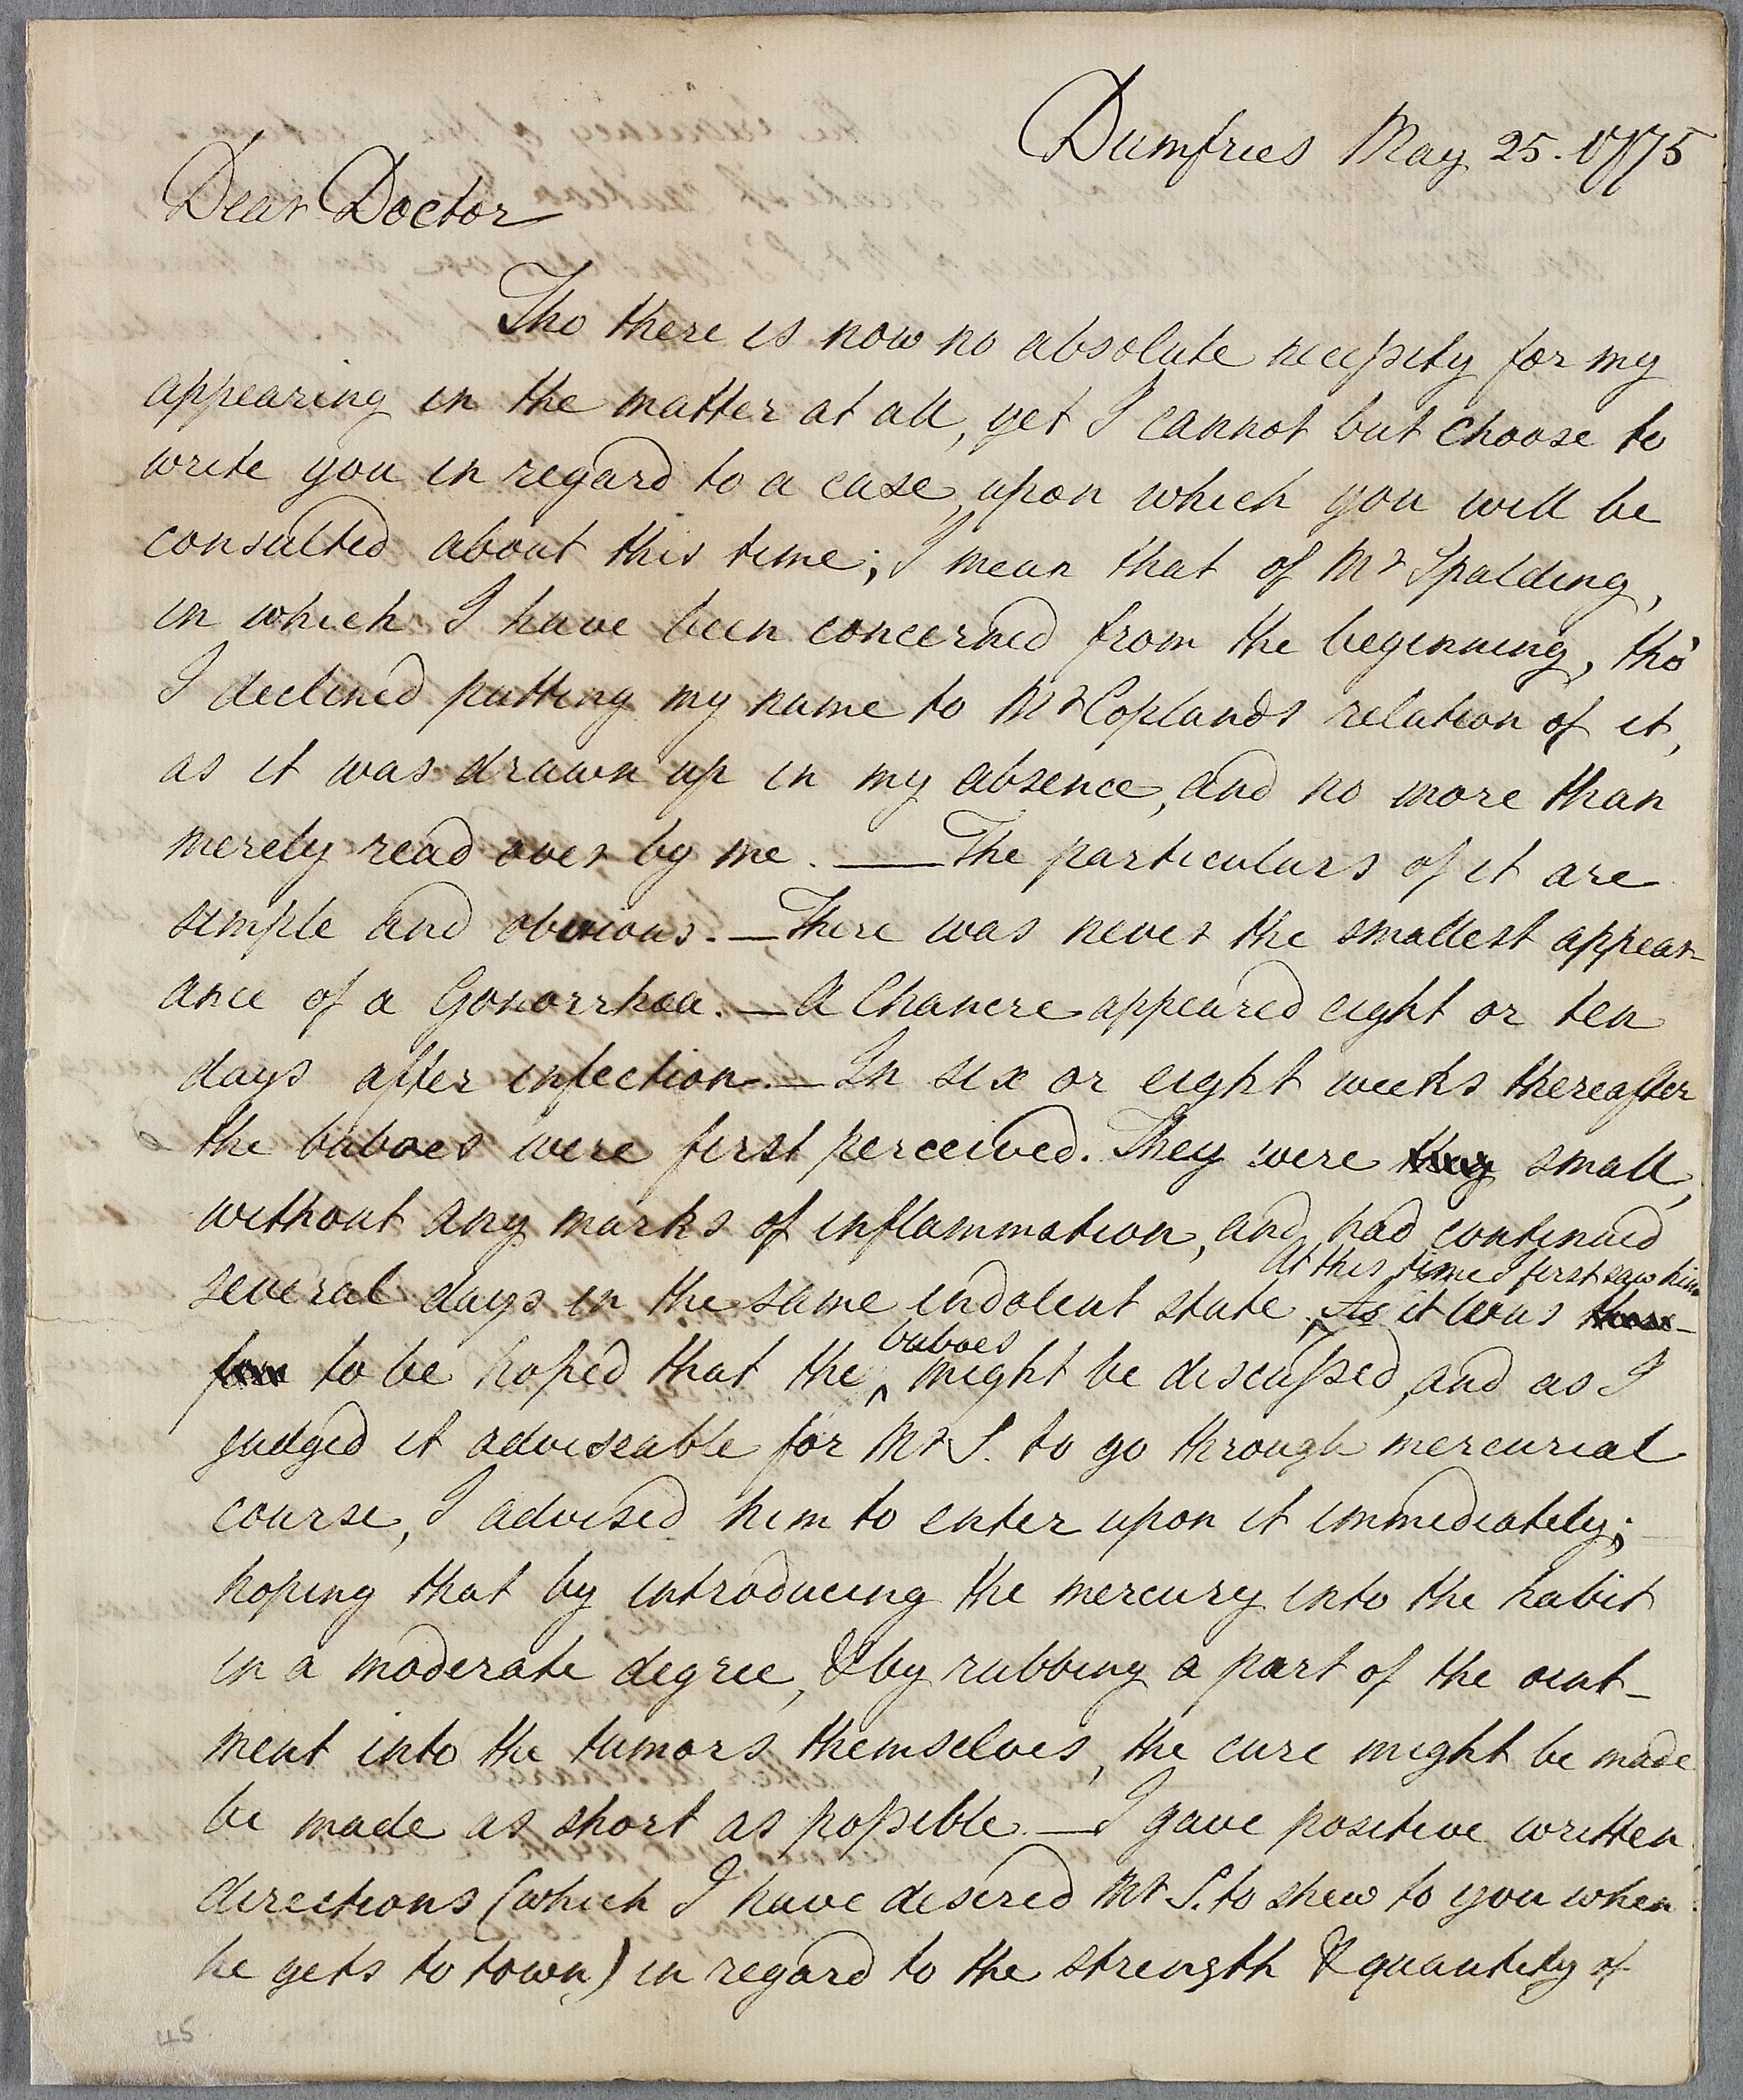 Dumfries May 25. 1775
Dear Doctor
Tho there is now no absolute necessity for my
appearing in the matter at all, yet I cannot but choose to
write you in regard to a case, upon which you will be
consulted about this time; I mean that of Mr Spalding,
in which I have been concerned from the beginning, tho'
I declined putting my name to Mr Coplands relation of it,
as it was drawn up in my absence, and no more than
merely read over by me. — The particulars of it are
simple and obvious. — There was never the smallest appear-
ance of a Gonorrhaea. — A Chancre appeared eight or ten
days after infection. — In six or eight weeks thereafter
the buboes were first perceived. They were they small,
without any marks of inflammation, and had continued
At this time I first saw him.
several days in the same indolent state. ^ As it was there-
buboes
fore to be hoped that the ^ might be discussed, and as I
judged it adviseable for Mr S. to go through mercurial
course, I advised him to enter upon it immediately;
hoping that by introducing the mercury into the habit
in a moderate degree, & by rubbing a part of the oint-
ment into the tumors themselves, the cure might be made
be made as short as possible — I gave positive written
directions (which I have desired Mr S. to shew to you when
he gets to town,) in regard to the strength & quantity of
45